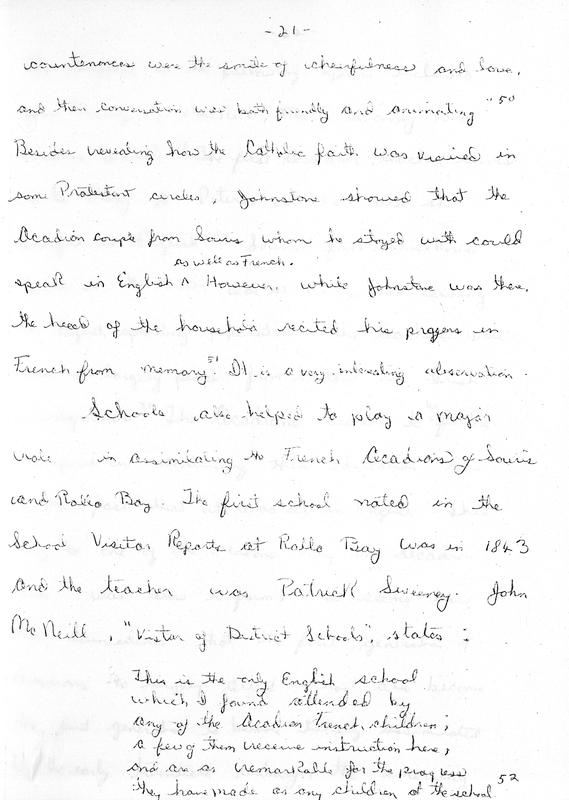 -21-
countenances were the smile of cheerfulness and love,
and their conversation was both friendly and animating "50
Besides revealing how the Catholic faith was viewed in
some Protestant circles, Johnstone showed that the
Acadian couple from Souris whom he stayed with could
as well as French.
speak in English ^ However, while Johnstone was there,
the head of the household recited his prayers in
French from memory. 51 It is a very interesting observation.
Schools also helped to play a major
role in assimilating the French Acadians of Souris
and Rollo Bay. The first school noted in the
School Visitor Reports at Rollo Bay was in 1843
and the teacher was Patrick Sweeney. John
McNeill, "Vistor of District Schools", states:
This is the only English school
which I found attended by
any of the Acadian French children;
a few of them receive instruction here,
and are as remarkable for the progress
they have made as any children at the school 52